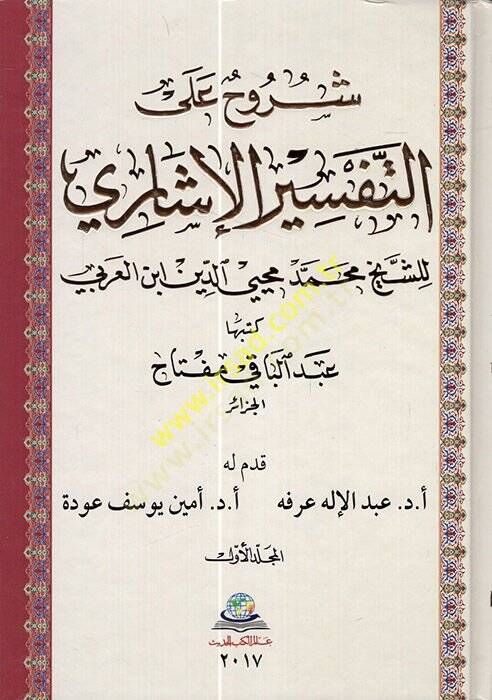 شروح على
التفسير الإشاري
للشيخ محمد محيي الدين ابن العربي
كتبها
عبد الباقي مفتاح
الجزائر
قدم له
أ.د. عبد الإله عرفه أ.د. أمين يوسف عودة
المجلد الأول
عالم الكتب الحديث
٢٠١٧
www.irsad.com.tr